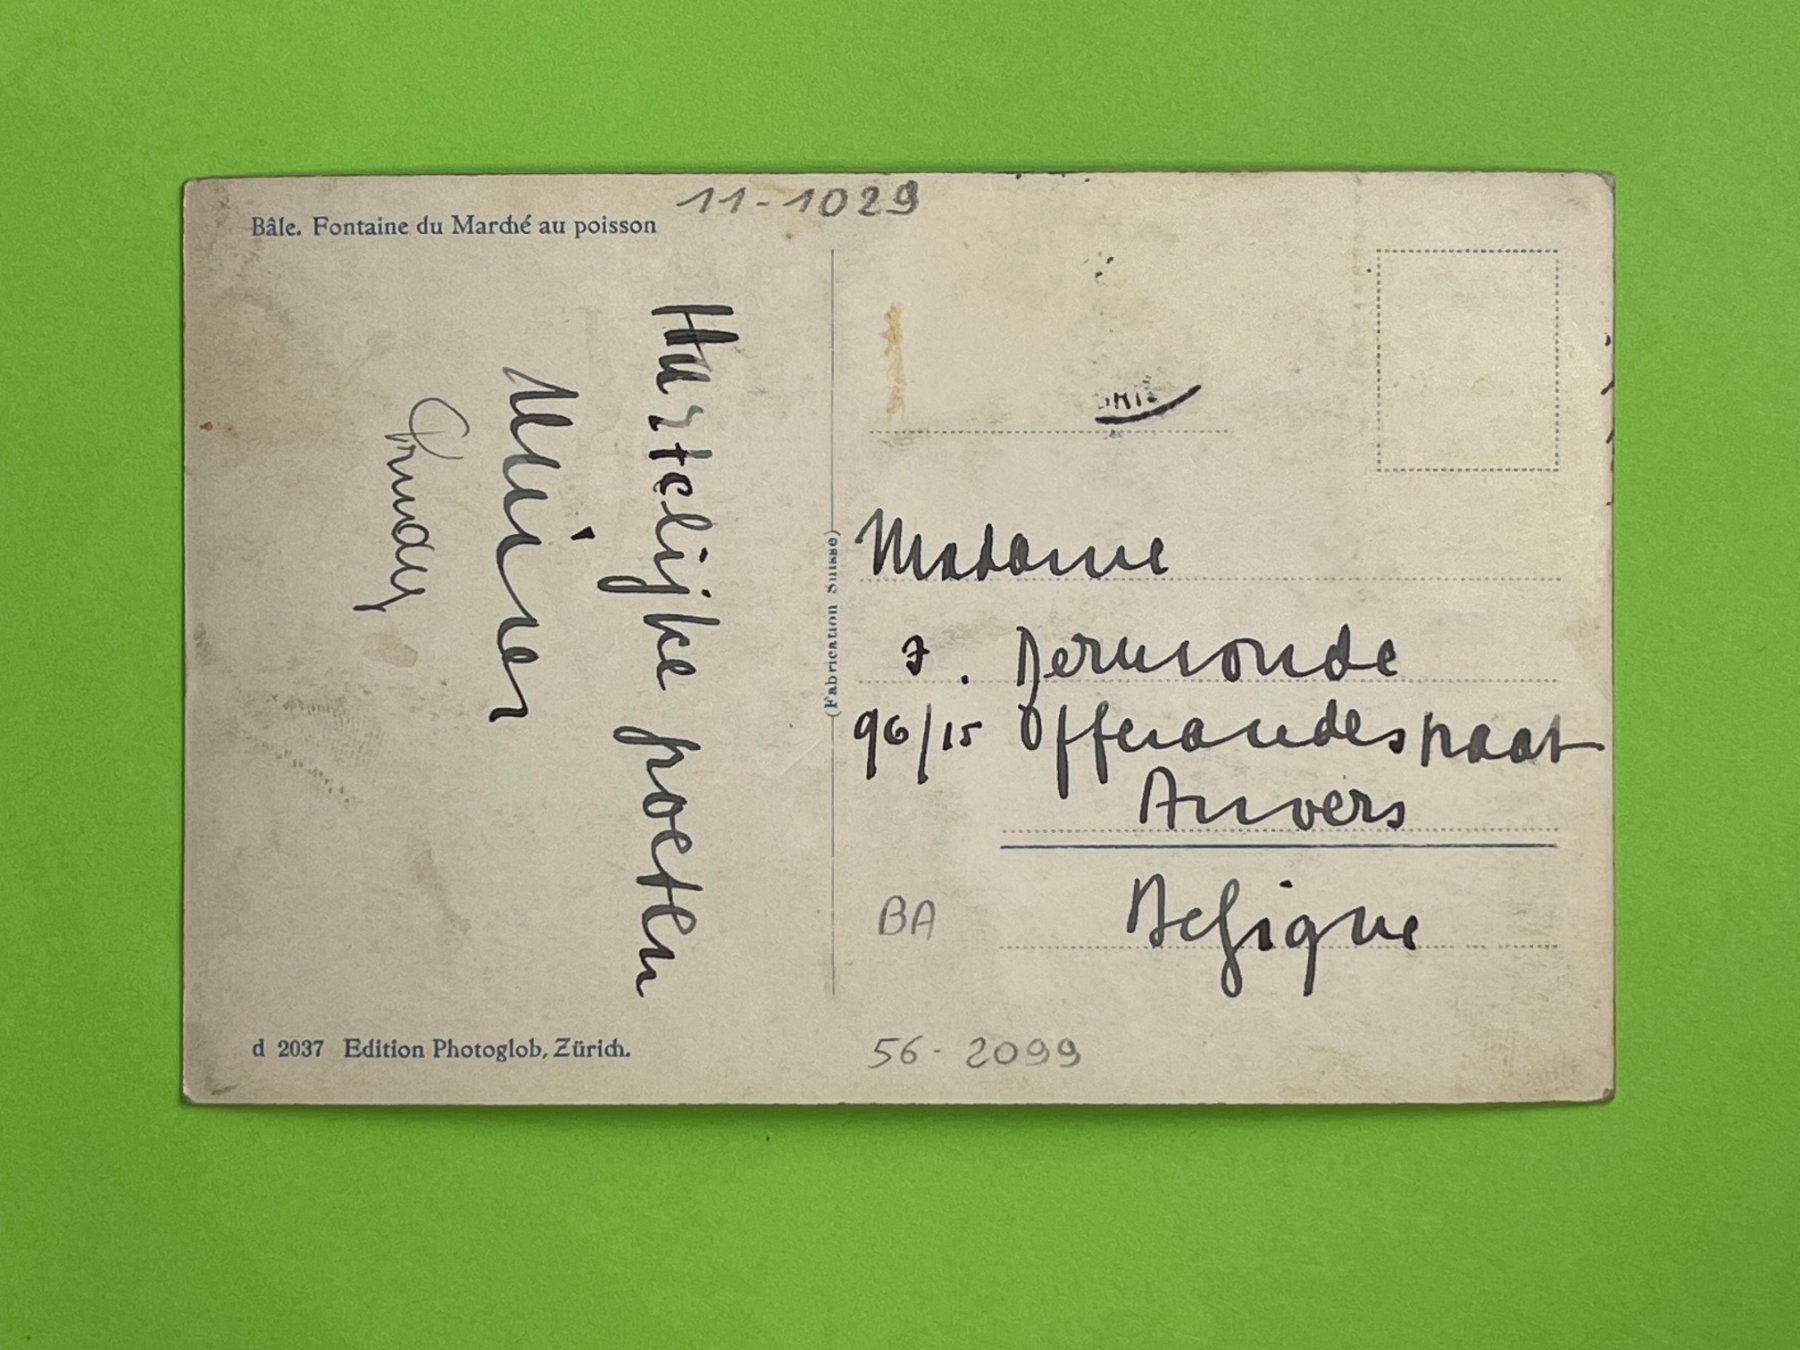 11-1029
Bâle. Fontaine du Marché au poisson
Hartelijke groeten
(Fabrication Suisse)
Madame
J. Dermonde
96/15 Offerandestraat
Anvers
Belgique
BA
d 2037 Edition Photoglob, Zürich.
56-2099